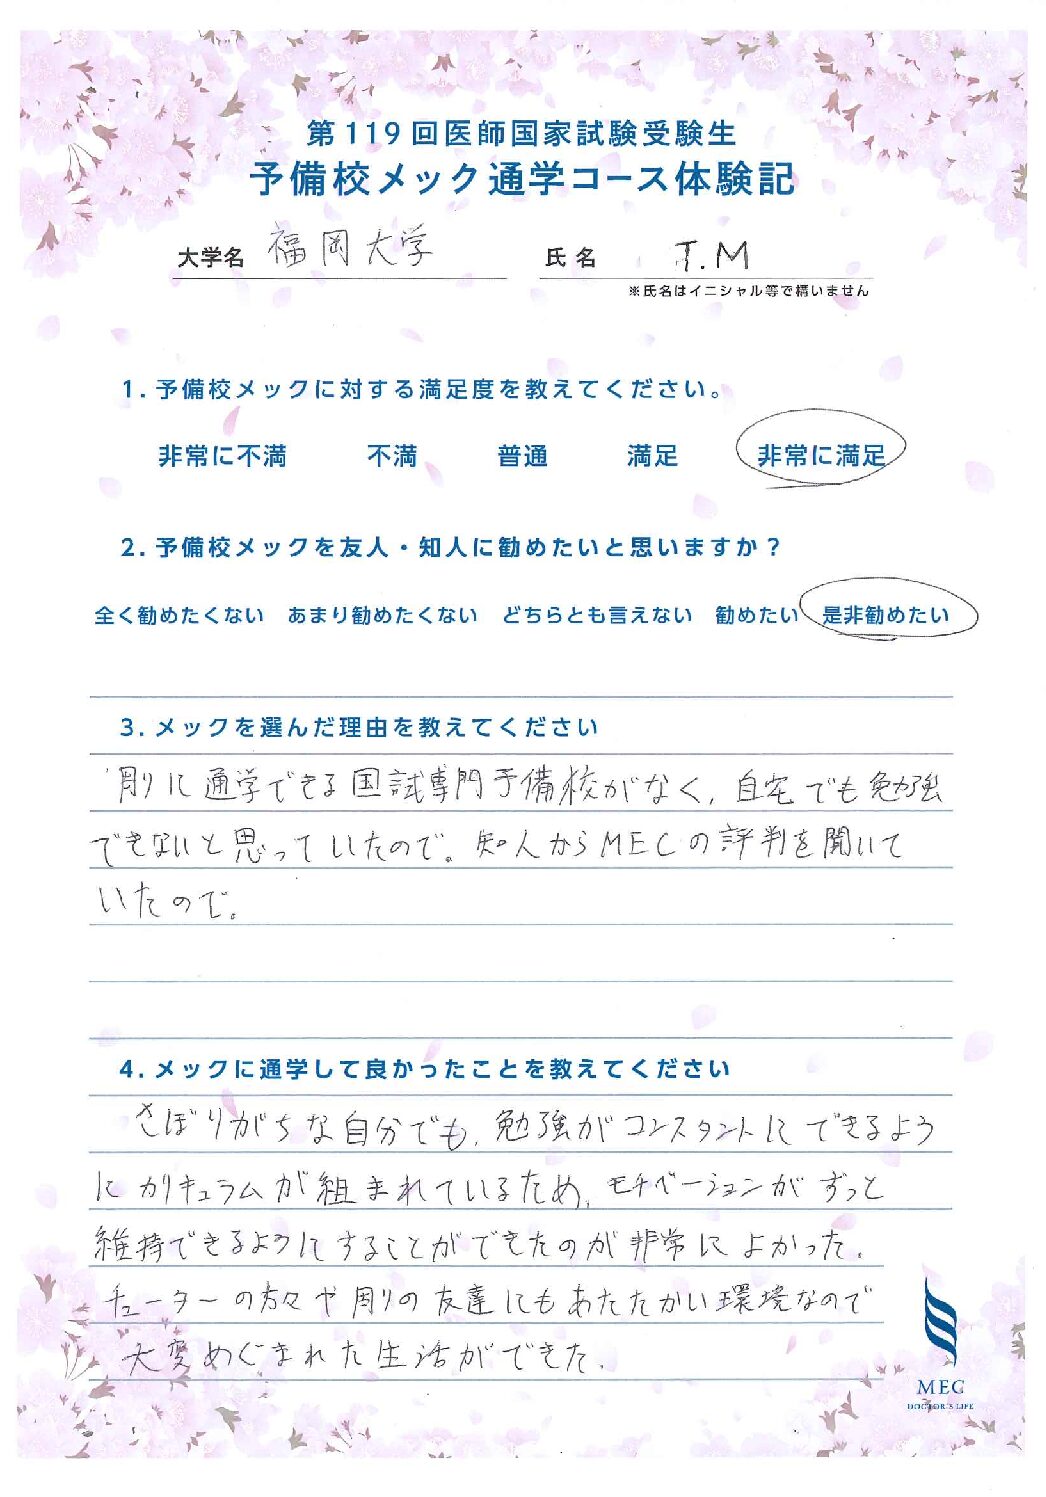 第119回医師国家試験受験生
予備校メック通学コース体験記
大学名 福岡大学 氏名 T.M
※氏名はイニシャル等で構いません
1. 予備校メックに対する満足度を教えてください。
非常に不満 不満 普通 満足 非常に満足
2. 予備校メックを友人・知人に勧めたいと思いますか？
全く勧めたくない あまり勧めたくない どちらとも言えない 勧めたい 是非勧めたい
3. メックを選んだ理由を教えてください
周りに通学できる国試専門予備校がなく、自宅でも勉強
できないと思っていたので。知人からMECの評判を聞いて
いたので。
4. メックに通学して良かったことを教えてください
さぼりがちな自分でも、勉強がコンスタントにできるよう
にカリキュラムが組まれているため、モチベーションがずっと
維持できるようにすることができたのが非常によかった。
チューターの方々や周りの友達にもあたたかい環境なので
大変めぐまれた生活ができた。
MEC
DOCTOR'S LIFE